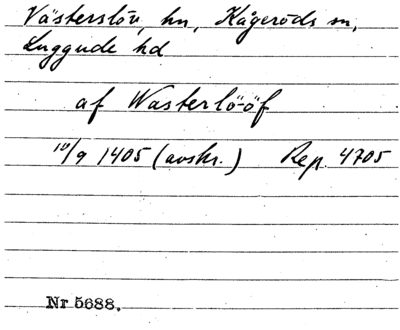 Västerslöv, hn, Kågeröds sn,
Luggude hd
af Wasterlö-öf
10/9 1405 (avskr.) Rep. 4705
Nr 5688.